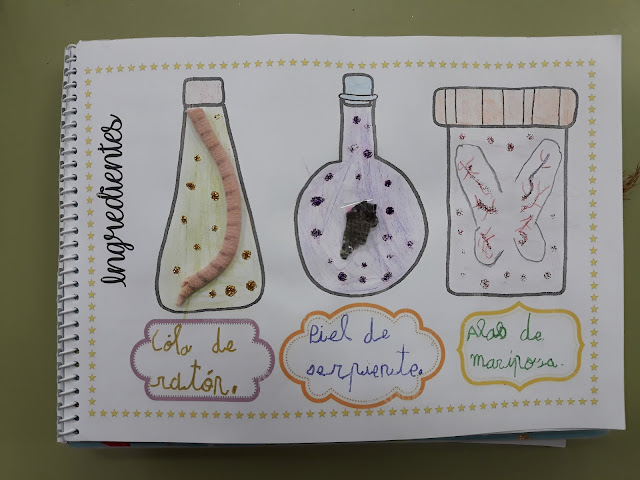 Ingredientes
Cola de
ratón.
Piel de
serpiente.
Alas de
mariposa.